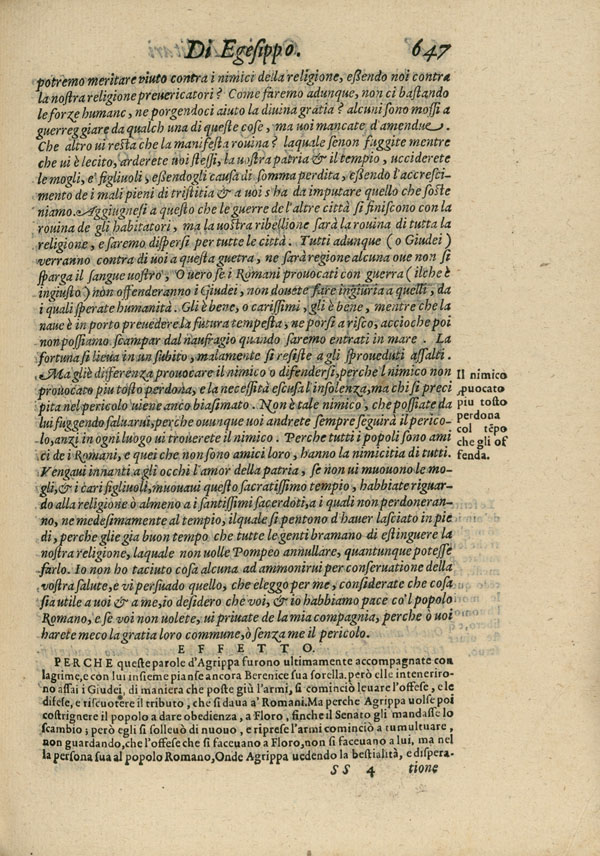 Di Egesippo. 647
potremo meritare viuto contra i nimici della religione, eßendo noi contra
la nostra religione preuericatori? Come faremo adunque, non ci bastando
le forze humane, ne porgendoci aiuto la diuina gratia? alcuni sono mossi a
guerreggiare da qualch una di queste cose, ma uoi mancate d'amendue.
Che altro ui resta che la manifesta rouina? laquale se non fuggite mentre
che ui è lecito, arderete uoi stessi, la uostra patria & il tempio, ucciderete
le mogli, e' figliuoli, eßendogli causa di somma perdita, eßendo l'accresci-
mento de i mali pieni di tristitia & a uoi s'ha da imputare quello che soste
niamo. Aggiugnesi a questo che le guerre de l'altre città si finiscono con la
rouina de gli habitatori, ma la uostra ribellione sarà la rouina di tutta la
religione, e saremo dispersi per tutte le città. Tutti adunque (o Giudei)
verranno contra di uoi a questa guerra, ne sarà regione alcuna oue non si
sparga il sangue uostro, O uero se i Romani prouocati con guerra (ilche è
ingiusto) non offenderanno i Giudei, non douete fare ingiuria a quelli, da
i quali sperate humanità. Gli è bene, o carissimi, gli è bene, mentre che la
naue è in porto preuedere la futura tempesta, ne porsi a risco, accioche poi
non possiamo scampar dal naufragio quando saremo entrati in mare. La
fortuna si lieua in un subito, malamente si resiste a gli sproueduti assalti.
Ma gliè differenza prouocare il nimico o difendersi, perche l nimico non
prouocato piu tosto perdona, e la necessità escusa l insolenza, ma chi si preci
pita nel pericolo uiene anco biasimato. Non è tale nimico, che possiate da
lui fuggendo saluarui, perche ouunque uoi andrete sempre seguirà il perico-
lo, anzi in ogni luogo ui trouerete il nimico. Perche tutti i popoli sono ami
ci de i Romani, e quei che non sono amici loro, hanno la nimicitia di tutti.
Vengaui innanti a gli occhi l'amor della patria, se non ui muouono le mo-
gli, & i cari figliuoli, muouaui questo sacratissimo tempio, habbiate riguar-
do alla religione ò almeno a i santissimi sacerdoti, a i quali non perdoneran-
no, ne medesimamente al tempio, ilquale si pentono d'hauer lasciato in pie
di, perche glie gia buon tempo che tutte le genti bramano di estinguere la
nostra religione, laquale non uolle Pompeo annullare, quantunque potesse
farlo. Io non ho taciuto cosa alcuna ad ammonirui per conseruatione della
vostra salute, e vi persuado quello, che eleggo per me, considerate che cosa
sia utile a uoi & a me, io desidero che voi, & io habbiamo pace co'l popolo
Romano, e se voi non uolete, ui priuate de la mia compagnia, perche ò uoi
harete meco la gratia loro commune, ò senza me il pericolo.
EFFETTO.
PERCHE queste parole d'Agrippa furono ultimamente accompagnate con
lagrime, e con lui insieme pianse ancora Berenice sua sorella, però elle inteneriro-
no assai i Giudei, di maniera che poste giù l'armi, si cominciò leuare l'offese, e le
difese, e riscuotere il tributo, che si daua a' Romani. Ma perche Agrippa uolse poi
costrignere il popolo a dare obedienza, a Floro, finche il Senato gli mandasse lo
scambio; però egli si solleuò di nuouo, e riprese l'armi cominciò a tumultuare,
non guardando, che l'offese che si faceuano a Floro, non si faceuano a lui, ma nel
la persona sua al popolo Romano, Onde Agrippa uedendo la bestialità, e dispera-
SS 4 tione
Il nimico
puocato
piu tosto
perdona
col tẽpo
che gli of
fenda.